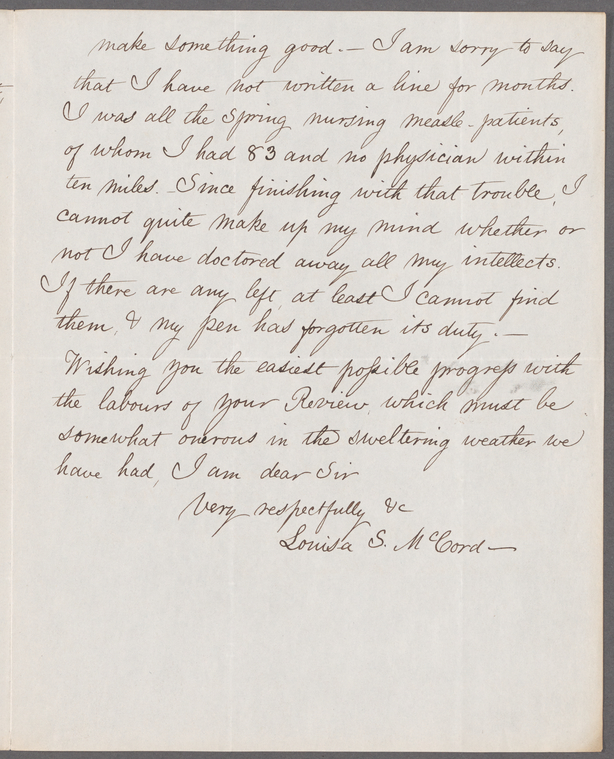 make something good. — I am sorry to say
that I have not written a line for months.
I was all the Spring nursing measle-patients,
of whom I had 83 and no physician within
ten miles. Since finishing with that trouble, I
cannot quite make up my mind whether or
not I have doctored away all my intellects.
If there are any left, at least I cannot find
them, & my pen has forgotten its duty. —
Wishing you the easiest poſsible progreſs with
the labours of your Review, which must be
somewhat onerous in the sweltering weather we
have had, I am dear Sir
Very respectfully &c
Louisa S. McCord —